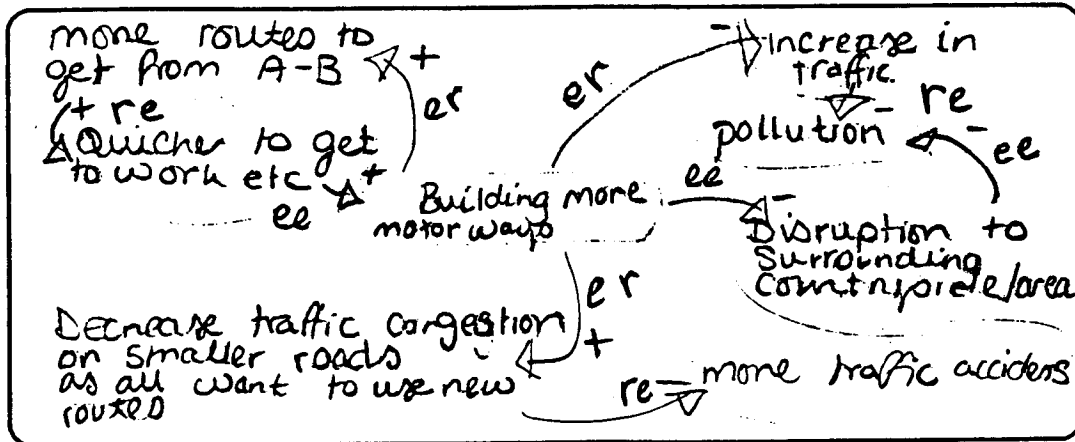 more routes to
get from A-B
+
er
+ re
Quicker to get
to work etc
+
ee
Building more
motorways
er
-
Increase in
traffic
- re
pollution
-
ee
ee
-
Disruption to
surrounding
countryside/area
er
+
Decrease traffic congestion
on smaller roads
as all want to use new
routes
re -
more traffic acciders